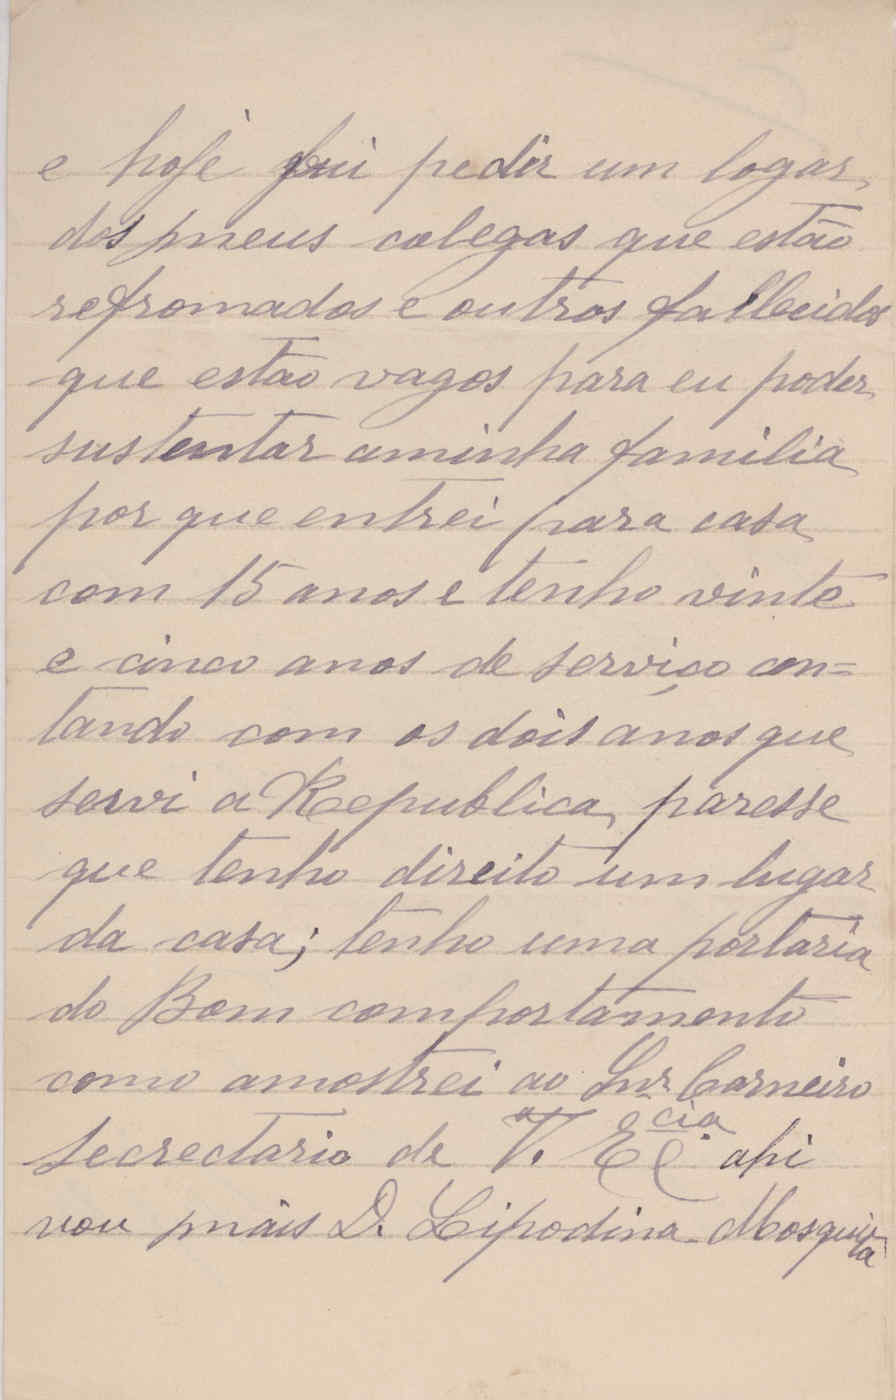 e hoje fui pedir um logar
dos meus colegas que estão
refromados e outros fallecidos
que estão vagos para eu poder
sustentar aminha familia
por que entrei para casa
com 15 anos e tenho vinte
e cinco anos de serviço con=
tando com os dois anos que
servi a Republica, paresse
que tenho direito um lugar
da casa; tenho uma portaria
do Bom comportamento
como amostrei ao Snr. Carneiro
secrectario de V.ª Ecia. ahi
vou mais D. Lipodina Mosquira